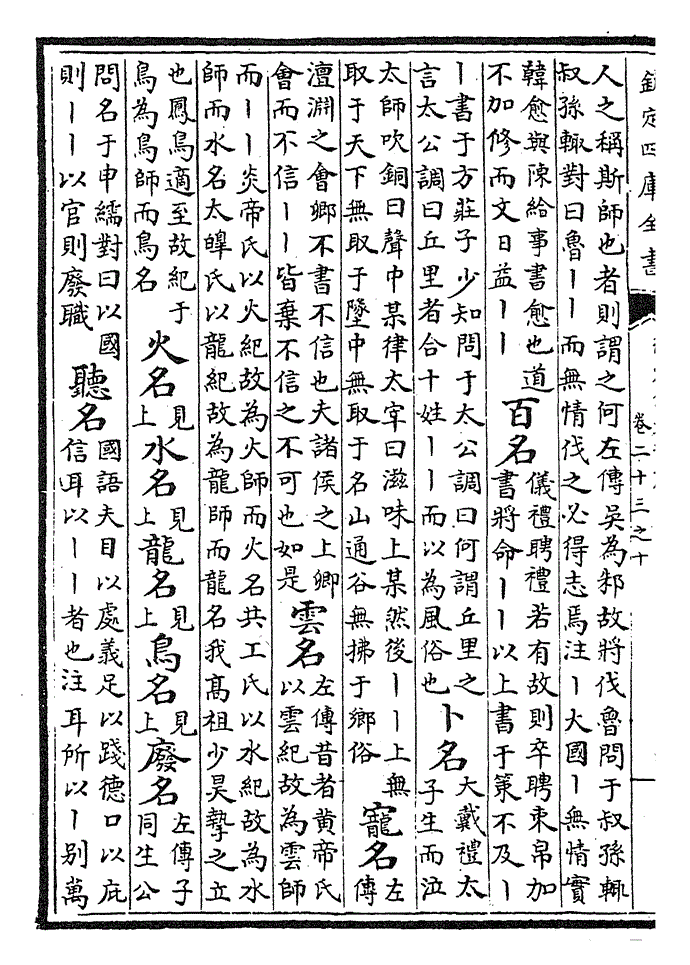 欽定四庫全書
卷二十三之十
人之稱斯師也者則謂之何左傳吳為邾故將伐魯問于叔孫輒
叔孫輒對曰魯丨丨而無情伐之必得志焉注丨大國丨無情實
韓愈與陳給事書愈也道
不加修而文日益丨丨
百名
儀禮聘禮若有故則卒聘束帛加
書將命丨丨以上書于策不及丨
丨書于方莊子少知問于太公調曰何謂丘里之
言太公調曰丘里者合十姓丨丨而以為風俗也
卜名
大戴禮太
子生而泣
太師吹銅曰聲中某律太宰曰滋味上某然後丨丨上無
取于天下無取于墬中無取于名山通谷無拂于鄉俗
寵名
左
傳
澶淵之會卿不書不信也夫諸侯之上卿
會而不信丨丨皆棄不信之不可也如是
雲名
左傳昔者黃帝氏
以雲紀故為雲師
而丨丨炎帝氏以火紀故為火師而火名共工氏以水紀故為水
師而水名太皥氏以龍紀故為龍師而龍名我高祖少昊摯之立
也鳳鳥適至故紀于
鳥為鳥師而鳥名
火名
見上
水名
見上
龍名
見上
鳥名
見上
廢名
左傳子
同生公
問名于申繻對曰以國
則丨丨以官則廢職
聽名
國語夫目以處義足以踐德口以庇
信耳以丨丨者也注耳所以丨別萬